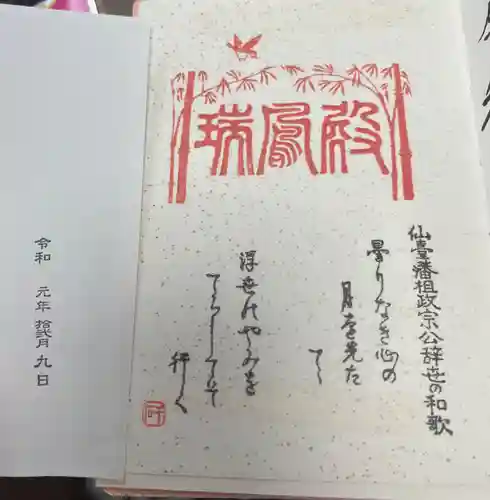 瑞鳳殿
仙臺藩祖政宗公辞世の和歌
曇りなき心の
月を先た
てゝ
浮世のやみを
てらしてそ
行く
令和 元年 拾弐月 九日